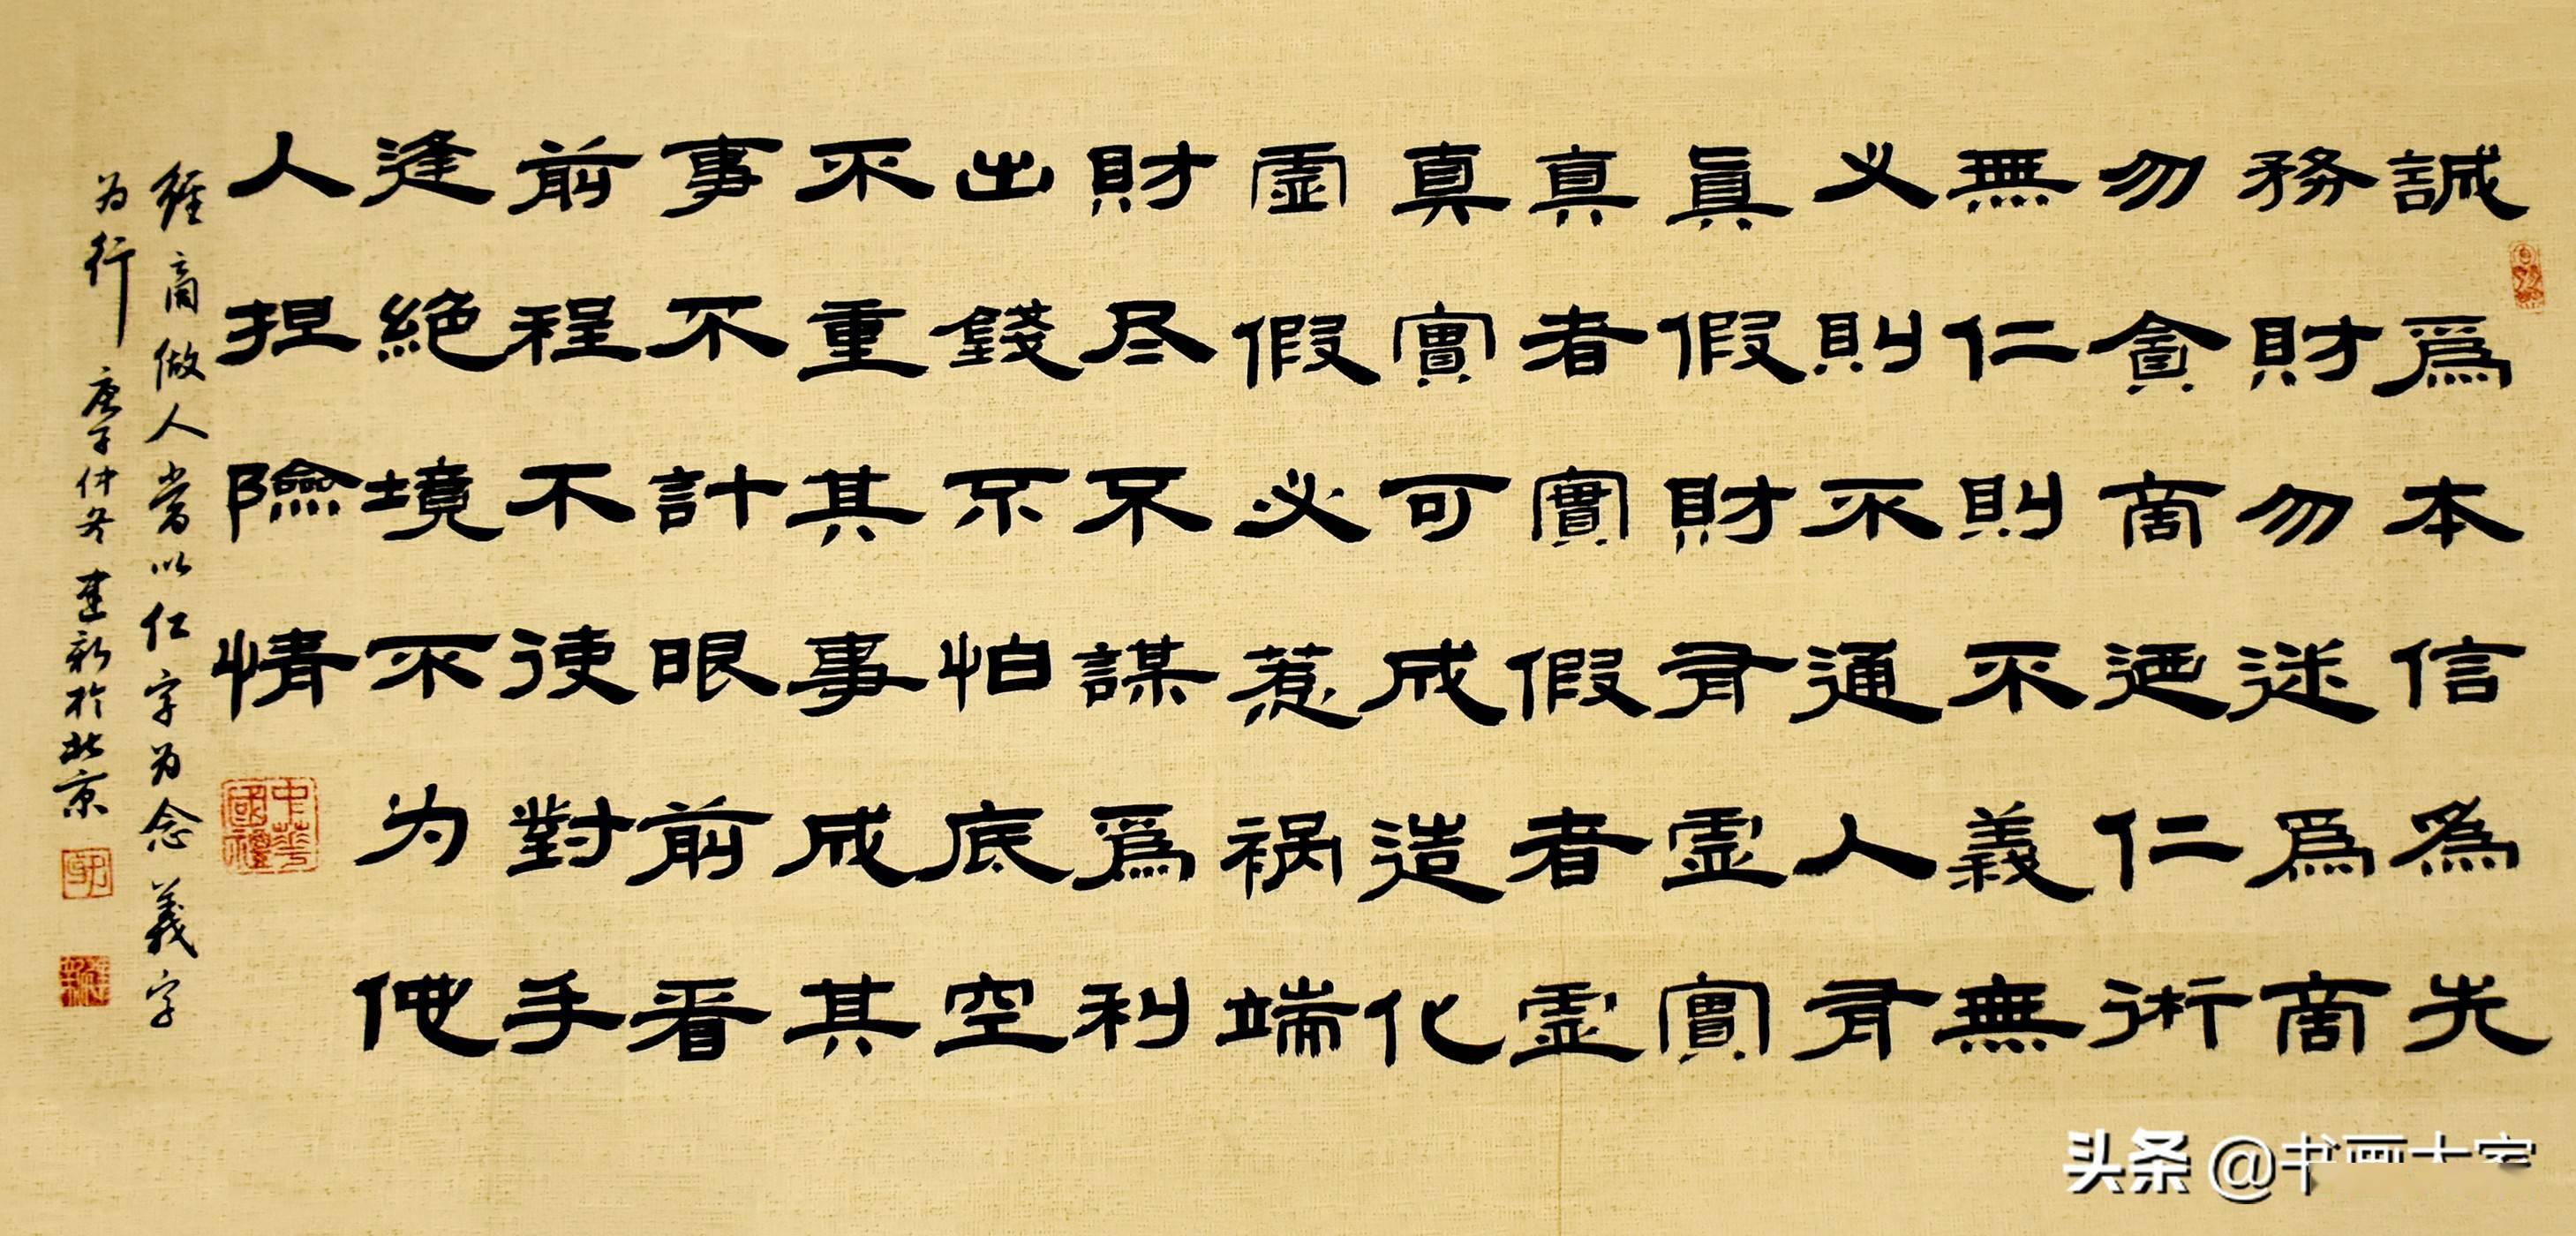 誠爲本信為先
務財勿迷爲商
勿貪商迺仁術
無仁則不義無
义則不通人有
眞假財有虛實
真者實假者虛
真實可成造化
虛假必惹祸端
財尽不謀爲利
出錢不怕底空
不重其事成其
事不計眼前看
前程不使對手
逢絕境不为他
人担險情
經商做人當以仁字为念義字
为行 庚子仲冬 建新於北京
中華國禮
头条 @书画大家